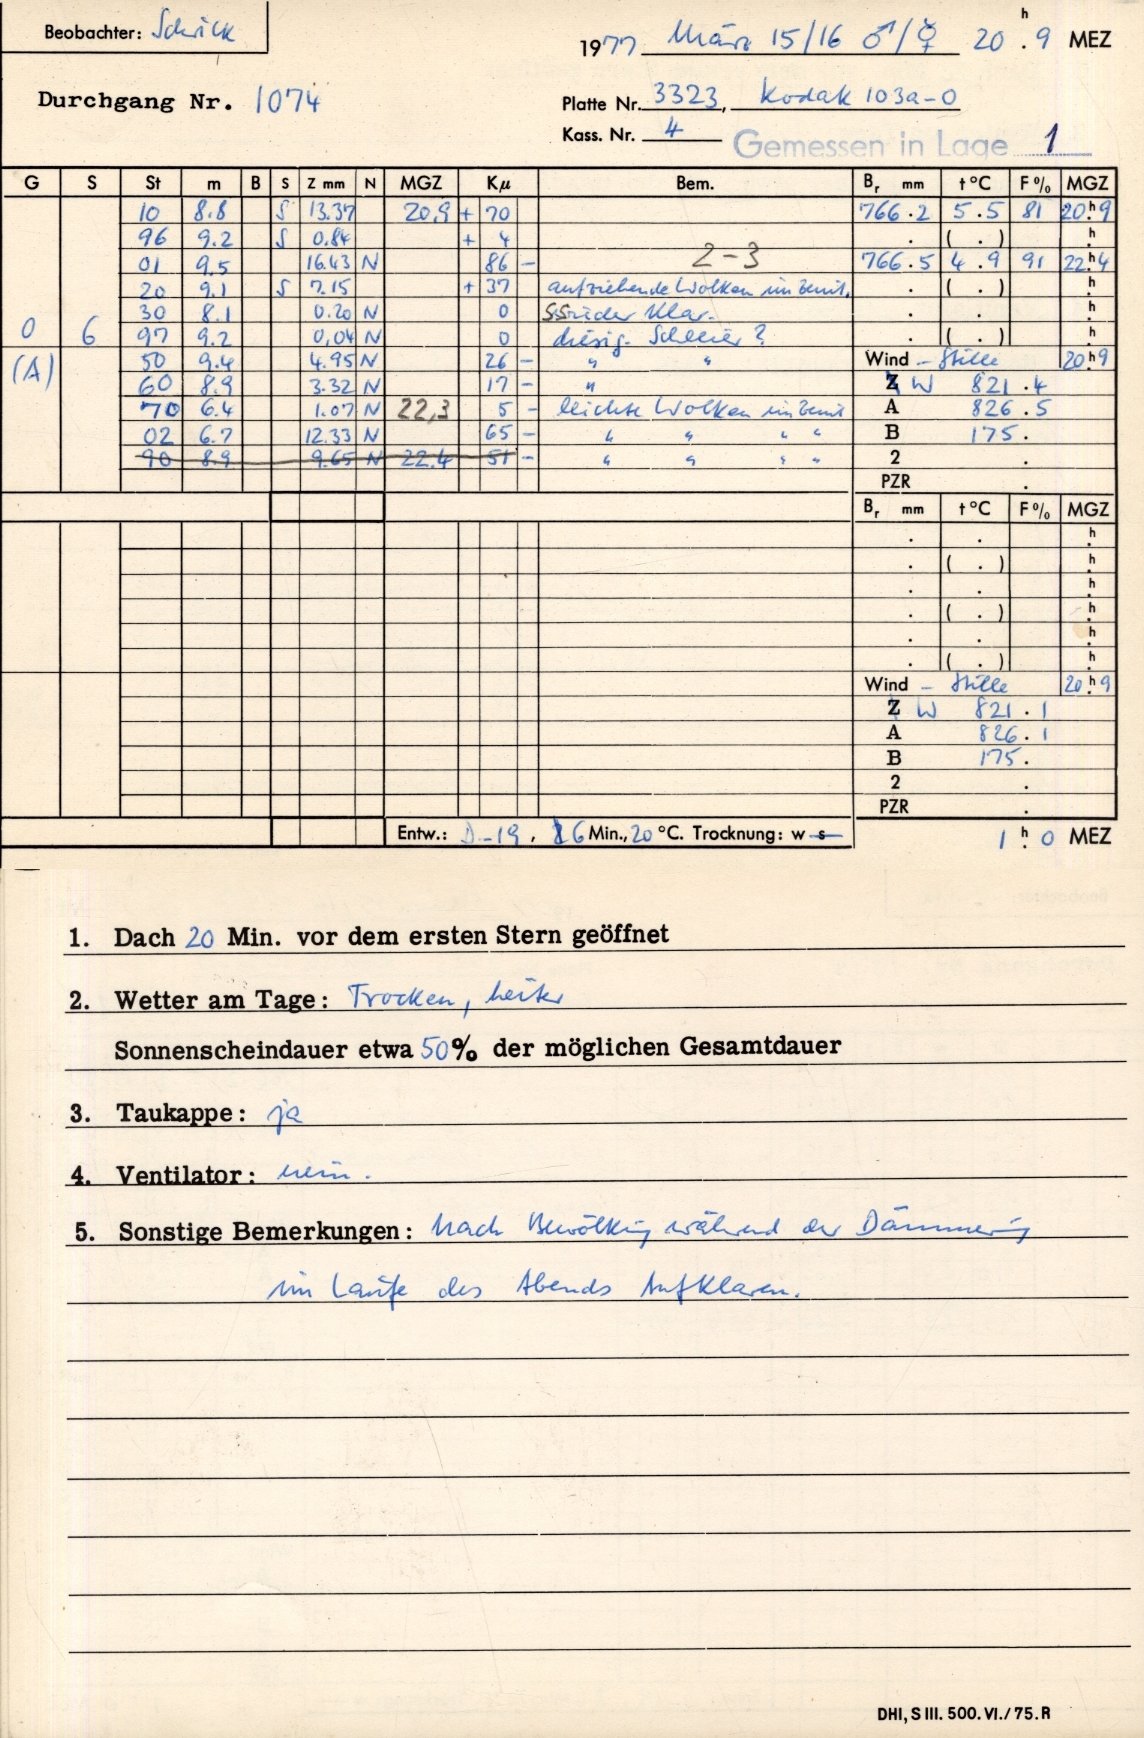 Beobachter: Schrick
1977 März 15/16 ♂/☿ 20 h . 9 MEZ
Durchgang Nr. 1074
Platte Nr. 3323, Kodak 103a-O
Kass. Nr. 4
Gemessen in Lage 1
G S St m B S Z mm N MGZ Kµ Bem. Br mm t °C F % MGZ
10 8.8 S 13.37 20,9 + 70 766.2 5.5 81 20h9
96 9.2 S 0.84 + 4 . ( . ) h
01 9.5 16.43 N 86 - 2-3 766.5 4.9 91 22h4
20 9.1 S 7.15 + 37 aufziehende Wolken im Zenit. . ( . ) h
0 6 30 8.1 0.20 N 0 klar. . . h
97 9.2 0,04 N 0 diesig. Schleier? . ( . ) h
(A) 50 9.4 4.95 N 26 - " " Wind - Stille 20h9
60 8.9 3.32 N 17 - " Z W 821.4
70 6.4 1.07 N 22,3 5 - leichte Wolken im Zenit A 826.5
02 6.7 12.33 N 65 - " " " " B 175.
90 8.9 9.65 N 22.4 51 - " " " " 2 .
PZR .
Br mm t °C F % MGZ
. . h
. ( . ) h
. . h
. ( . ) h
. . h
. ( . ) h
Wind - Stille 20h9
Z W 821.1
A 826.1
B 175.
2 .
PZR .
Entw.: D-19, 16 Min., 20 °C. Trocknung: w s
1 h . 0 MEZ
1. Dach 20 Min. vor dem ersten Stern geöffnet
2. Wetter am Tage: Trocken, heiter
Sonnenscheindauer etwa 50% der möglichen Gesamtdauer
3. Taukappe: ja
4. Ventilator: nein.
5. Sonstige Bemerkungen: Nach Bewölkung während der Dämmerung
im Laufe des Abends Aufklaren.
DHI, S III. 500. VI./75. R